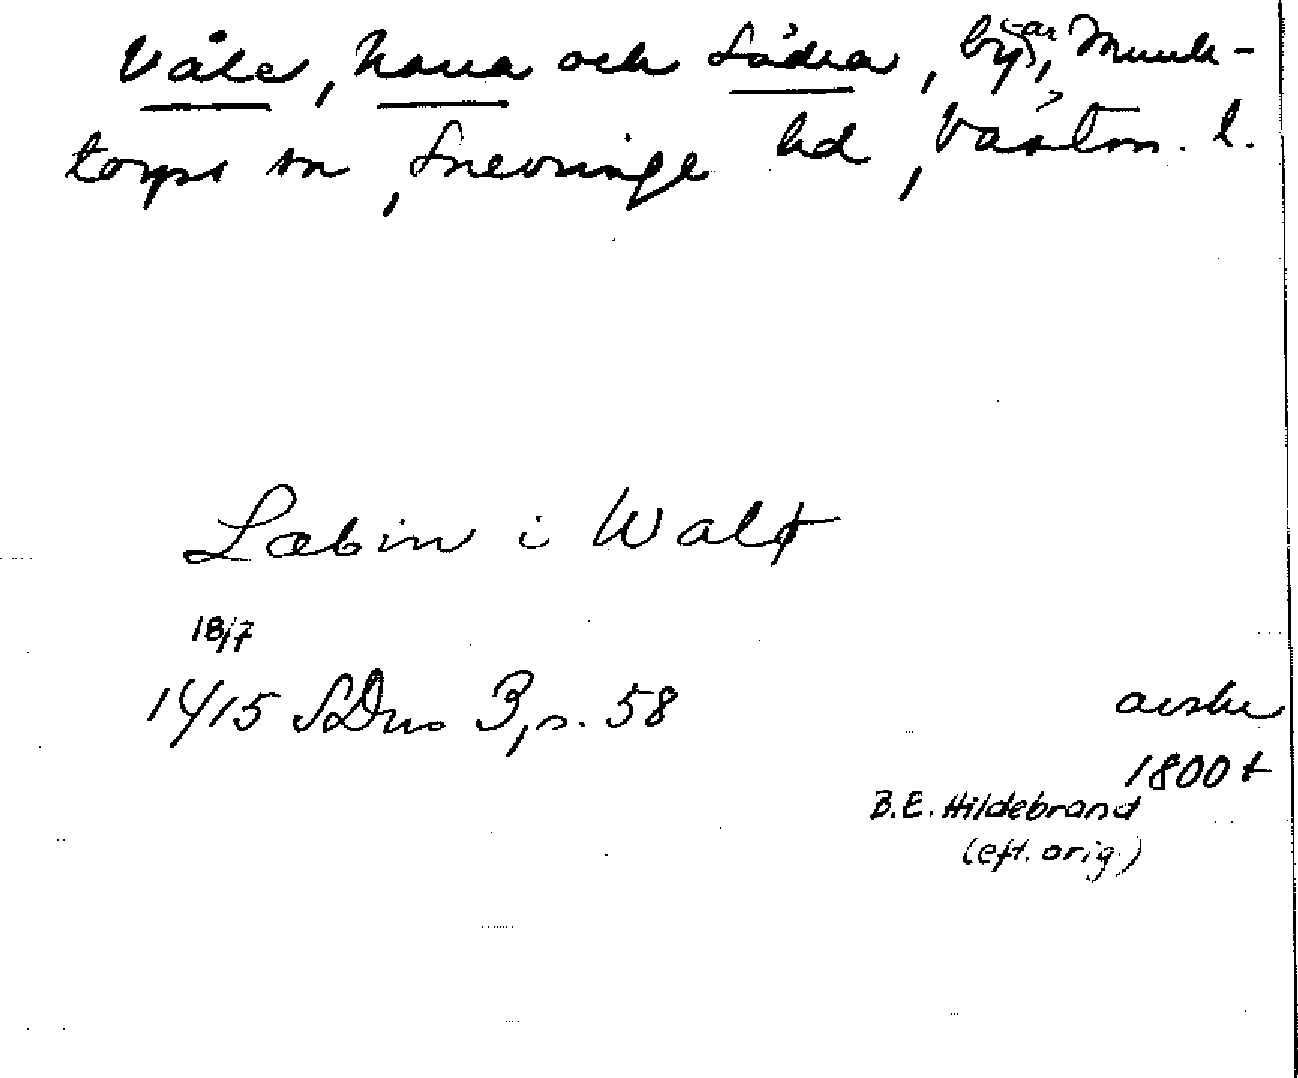 Våle, Norra och Södra, byar, Munk-
torps sn, Snevringe hd, Västm. l.
Læbin i Walf
18/7
1415 SDns 3, s. 58
avskr
1800 t
B.E. Hildebrand
(eft. orig.)